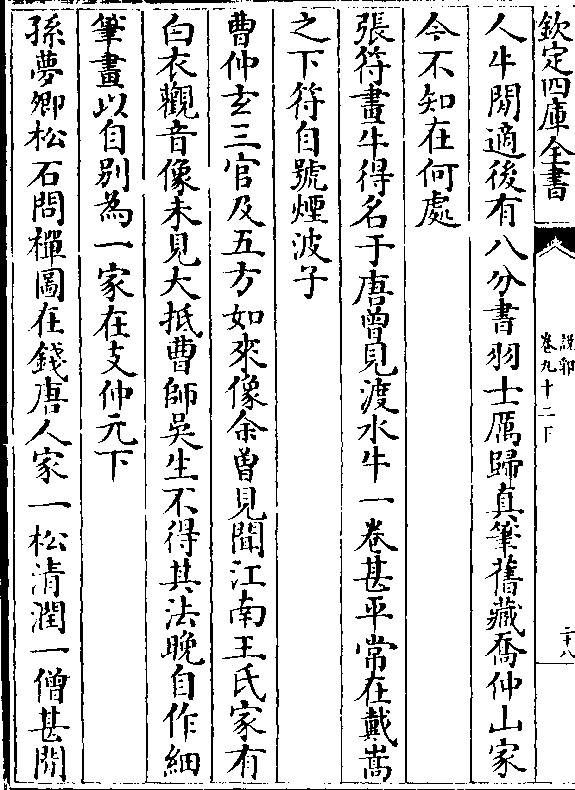 欽定四庫全書
說郛
卷九十二下
二十八
人牛閒適後有八分書羽士厲歸真筆舊藏喬仲山家
今不知在何處
張符畫牛得名于唐曾見渡水牛一卷甚平常在戴嵩
之下符自號煙波子
曹仲玄三官及五方如來像余曾見聞江南王氏家有
白衣觀音像未見大抵曹師吳生不得其法晚自作細
筆畫以自別為一家在支仲元下
孫夢卿松石問禪圖在錢唐人家一松清潤一僧甚閒